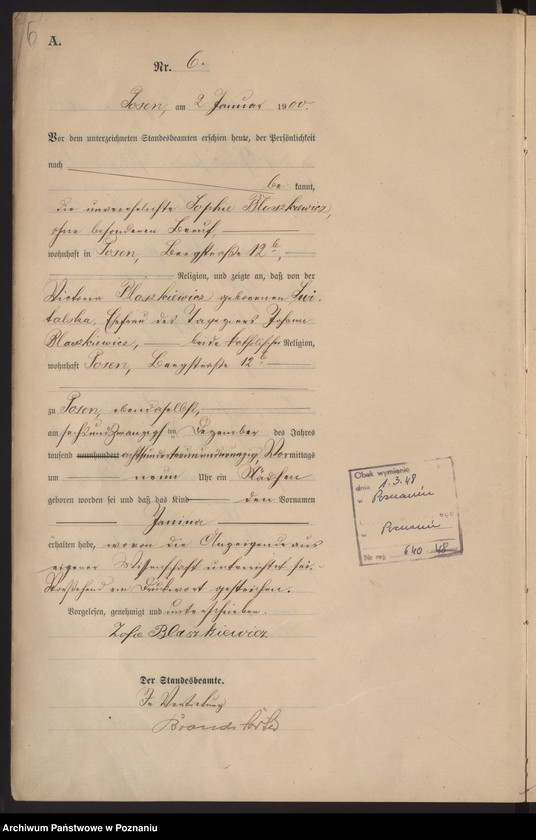 6
A.
Nr. 6.
Posen, am 2 Januar 1900.
Vor dem unterzeichneten Standesbeamten erschien heute, der Persönlichkeit
nach
be kannt,
die unverehelichte Sophie Blaszkiewicz,
ohne besonderen Beruf,
wohnhaft in Posen, Bergstraße 12 b,
Religion, und zeigte an, daß von der
Victoria Blaszkiewicz geborenen Swi-
talska, Ehefrau des Tapeziers Johann
Blaszkiewicz, beide katholischer Religion,
wohnhaft Posen, Bergstraße 12 b
zu Posen, ebendaselbst,
am sechsundzwanzigsten Dezember des Jahres
tausend neunhundert achthundertneunundneunzig, Vormittags
um neun Uhr ein Mädchen
geboren worden sei und daß das Kind den Vornamen
Janina
erhalten habe, wovon die Anzeigende aus
eigener Wissenschaft unterrichtet sei.
Vorstehend ein Druckwort gestrichen.
Vorgelesen, genehmigt und unterschrieben.
Zofia Blaszkiewicz
Der Standesbeamte.
In Vertretung
Obok wymienio
dnia 1.3.48
w Poznaniu
w Poznaniu
Nr rej. 640 48
Archiwum Państwowe w Poznaniu